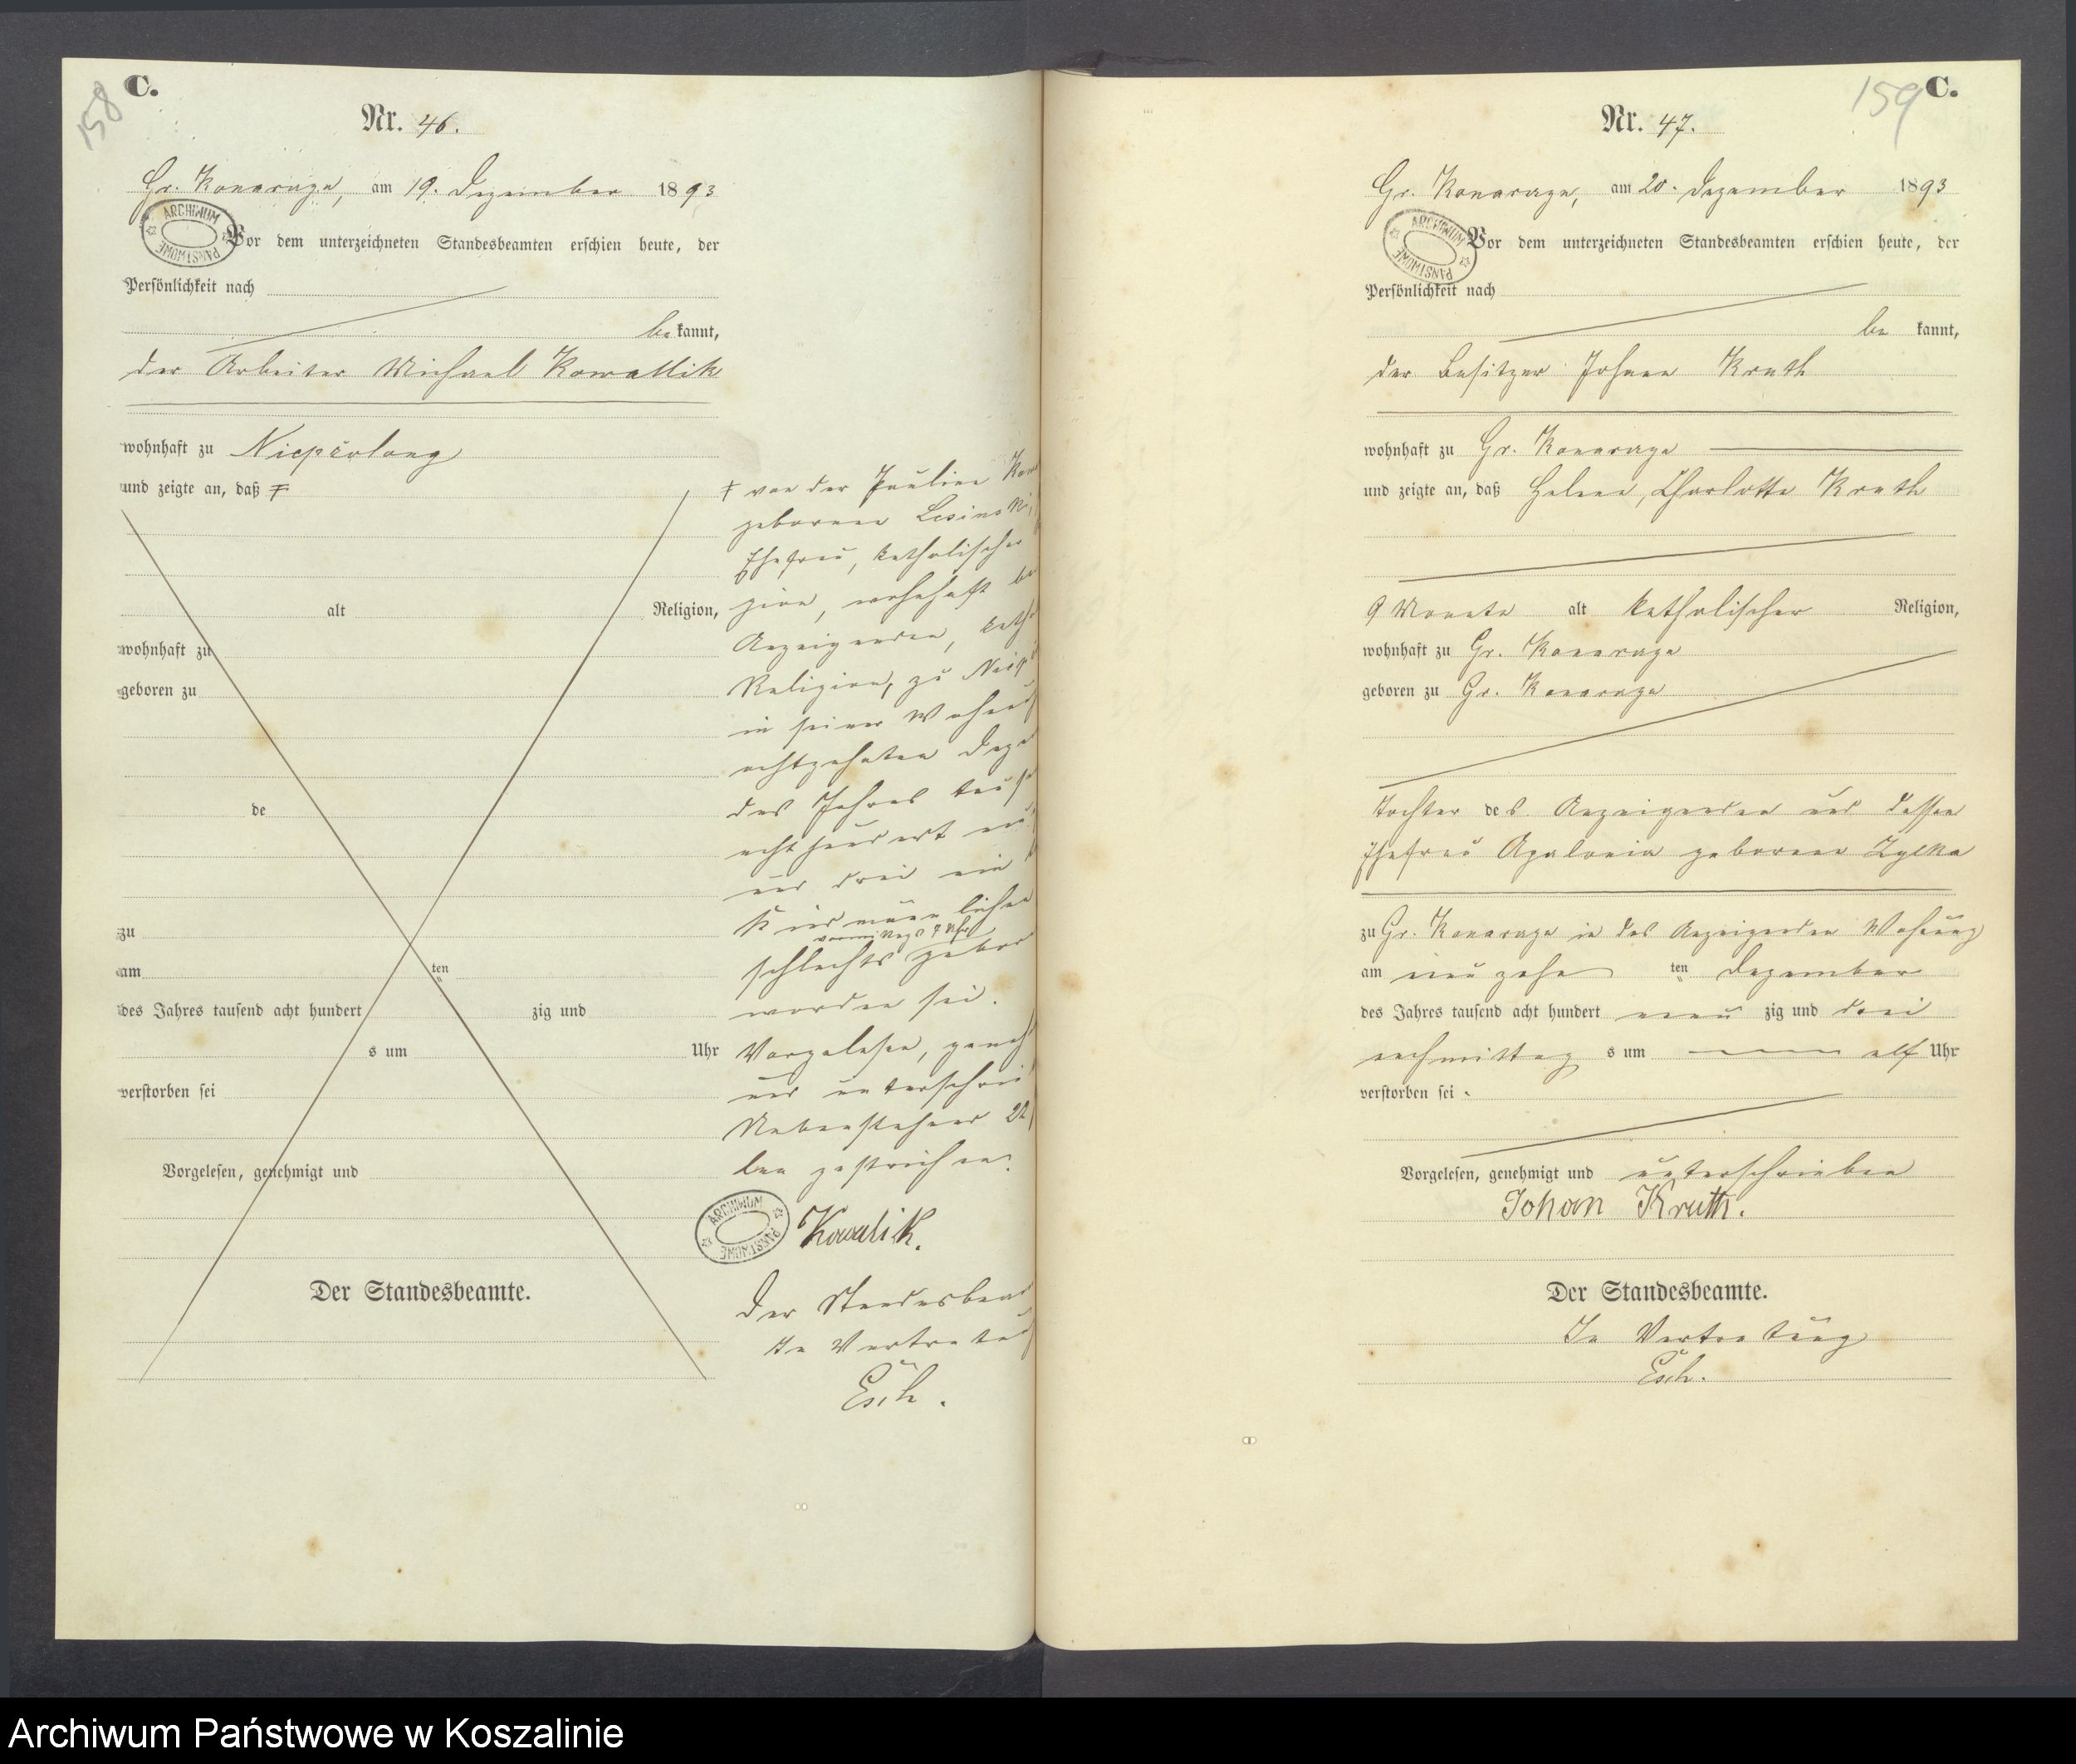 158
C.
Nr. 46.
Gr. Konarczyn, am 19. Dezember 1893
ARCHIWUM PAŃSTWOWE
Vor dem unterzeichneten Standesbeamten erschien heute, der
Persönlichkeit nach
be kannt,
der Arbeiter Michael Kowallik
wohnhaft zu
und zeigte an, daß
alt Religion,
wohnhaft zu
geboren zu
de
zu
am ten
des Jahres tausend acht hundert zig und
s um Uhr
verstorben sei
Vorgelesen, genehmigt und
Der Standesbeamte.
von der Pauline
geborenen Lesinski
Ehefrau, katholischer
gion, wohnhaft
Anzeigenden,
Religion, zu
in seiner
achtzehnten
des Jahres
acht hundert
und drei ein
Kind männlichen
vormittags 7 Uhr
schlechts
worden sei.
Vorgelesen,
und
Nebenstehend 22
gestrichen.
ARCHIWUM PAŃSTWOWE
Kowalik.
Der
In
Esch.
159
C.
Nr. 47.
Gr. Konarczyn, am 20. Dezember 1893
ARCHIWUM PAŃSTWOWE
Vor dem unterzeichneten Standesbeamten erschien heute, der
Persönlichkeit nach
be kannt,
der Besitzer Johann Kruth
wohnhaft zu Gr. Konarczyn
und zeigte an, daß Helene, Charlotte Kruth
9 Monate alt katholischer Religion,
wohnhaft zu Gr. Konarczyn
geboren zu Gr. Konarczyn
Tochter des Anzeigenden und dessen
Ehefrau Apalonia geborene Zylka
zu Gr. Konarczyn in des Anzeigenden Wohnung
am neunzehn ten Dezember
des Jahres tausend acht hundert neun zig und drei
nachmittag s um elf Uhr
verstorben sei.
Vorgelesen, genehmigt und unterschrieben
Johan Kruth.
Der Standesbeamte.
In Vertretung
Esch.
Archiwum Państwowe w Koszalinie